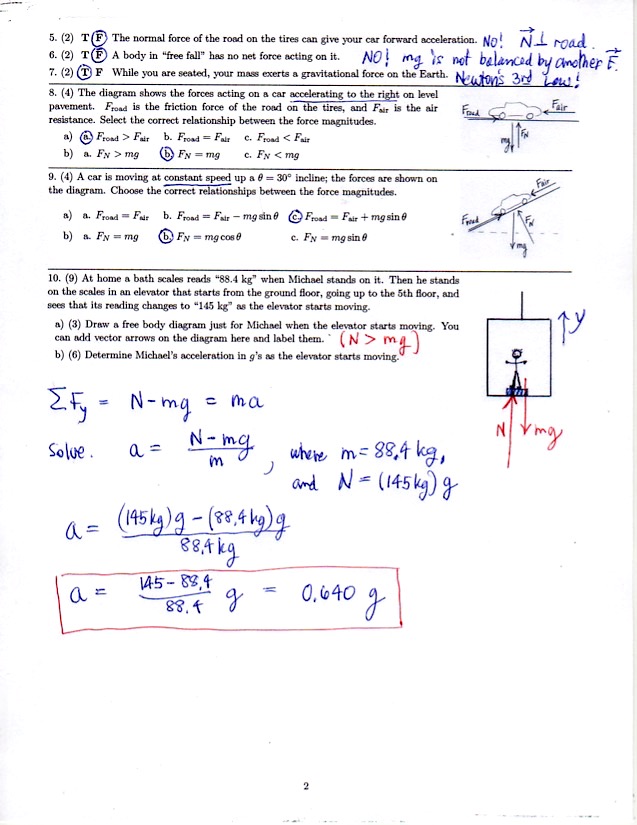 5. (2) T F The normal force of the road on the tires can give your car forward acceleration. No! N⃗ ⊥ road.
6. (2) T F A body in "free fall" has no net force acting on it. NO! mg is not balanced by another F⃗.
7. (2) T F While you are seated, your mass exerts a gravitational force on the Earth. Newton's 3rd Law!
8. (4) The diagram shows the forces acting on a car accelerating to the right on level
pavement. Froad is the friction force of the road on the tires, and Fair is the air
resistance. Select the correct relationship between the force magnitudes.
Froad Fair
mg FN
a) a. Froad > Fair b. Froad = Fair c. Froad < Fair
b) a. FN > mg b. FN = mg c. FN < mg
9. (4) A car is moving at constant speed up a θ = 30° incline; the forces are shown on
the diagram. Choose the correct relationships between the force magnitudes.
Fair
Froad FN
mg
a) a. Froad = Fair b. Froad = Fair − mg sin θ c. Froad = Fair + mg sin θ
b) a. FN = mg b. FN = mg cos θ c. FN = mg sin θ
10. (9) At home a bath scales reads "88.4 kg" when Michael stands on it. Then he stands
on the scales in an elevator that starts from the ground floor, going up to the 5th floor, and
sees that its reading changes to "145 kg" as the elevator starts moving.
a) (3) Draw a free body diagram just for Michael when the elevator starts moving. You
can add vector arrows on the diagram here and label them. (N > mg)
b) (6) Determine Michael's acceleration in g's as the elevator starts moving.
y
N mg
ΣFy = N − mg = ma
Solve. a = (N − mg)/m , where m = 88.4 kg,
and N = (145 kg) g
a = ((145 kg)g − (88.4 kg)g)/(88.4 kg)
a = (145 − 88.4)/88.4 g = 0.640 g
2